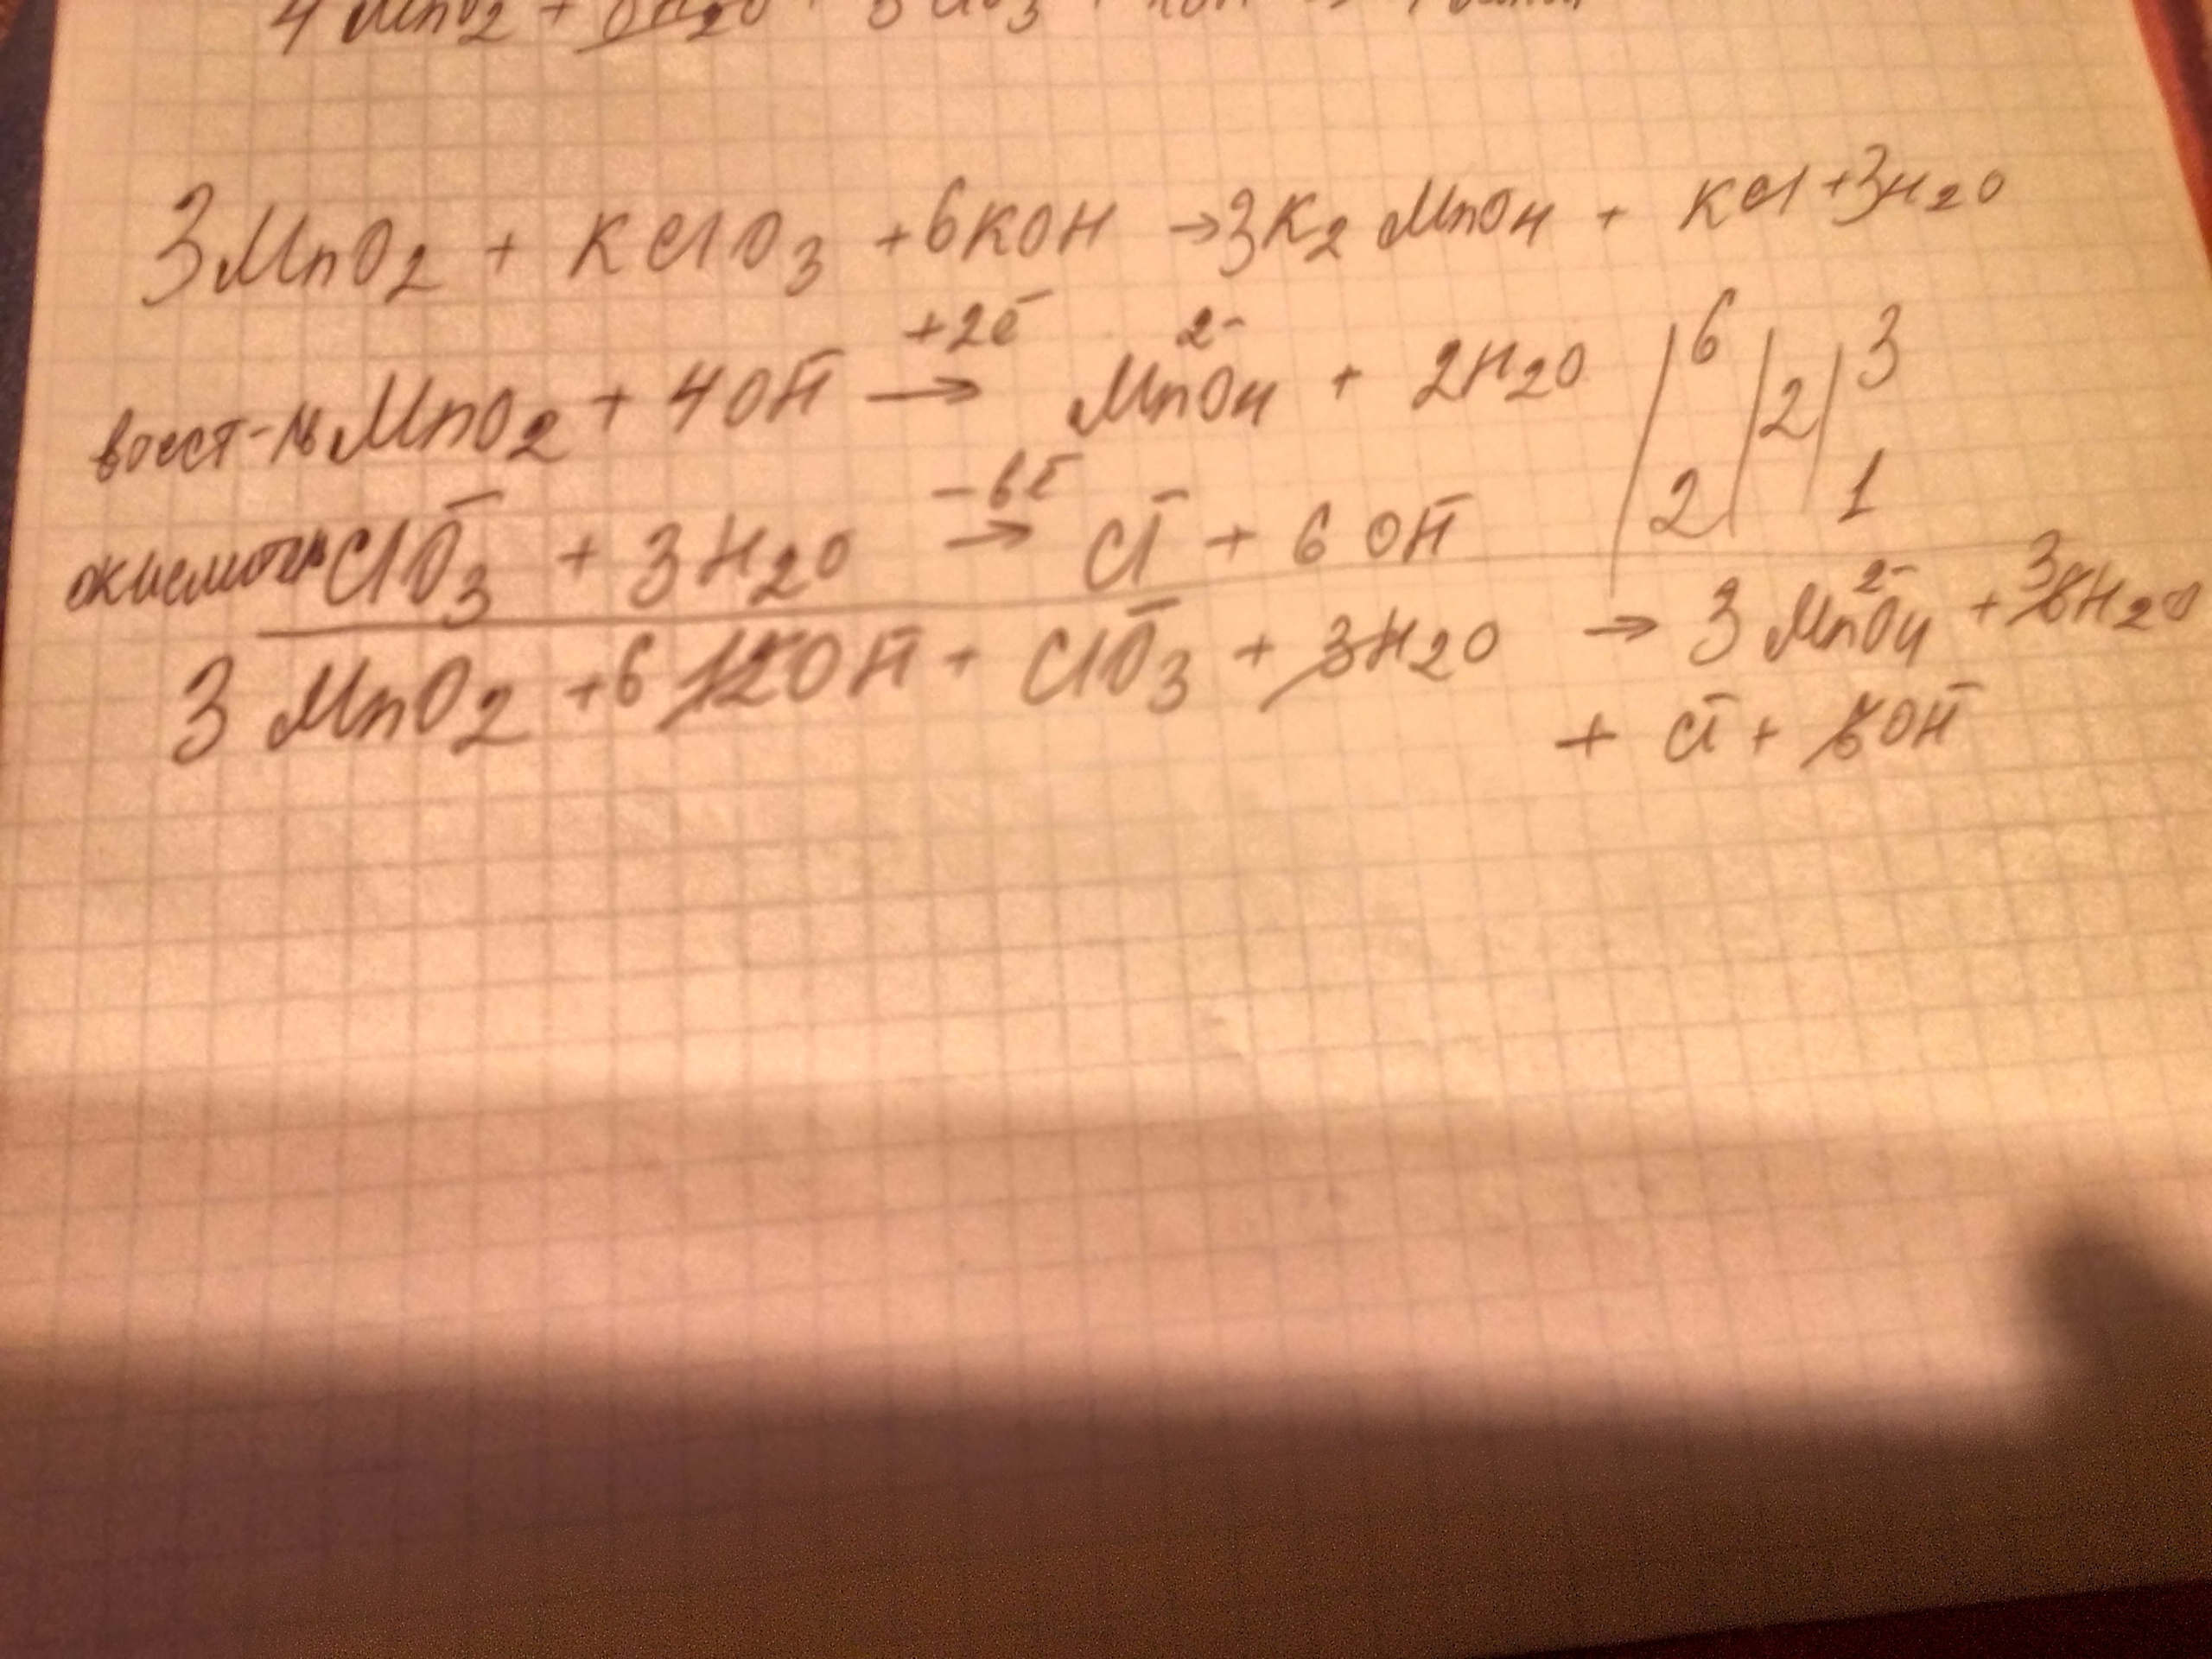 4 MnO2 +
3MnO2 + KClO3 + 6KOH → 3K2MnO4 + KCl + 3H2O
+2ē
восст-ль MnO2 + 4OH⁻ → MnO4²⁻ + 2H2O | 6 | 2 | 3
-6ē
окислитель ClO3⁻ + 3H2O → Cl⁻ + 6OH⁻ 2 1
3MnO2 + 6 12OH⁻ + ClO3⁻ + 3H2O → 3MnO4²⁻ + 3 6H2O
+ Cl⁻ + 6OH⁻